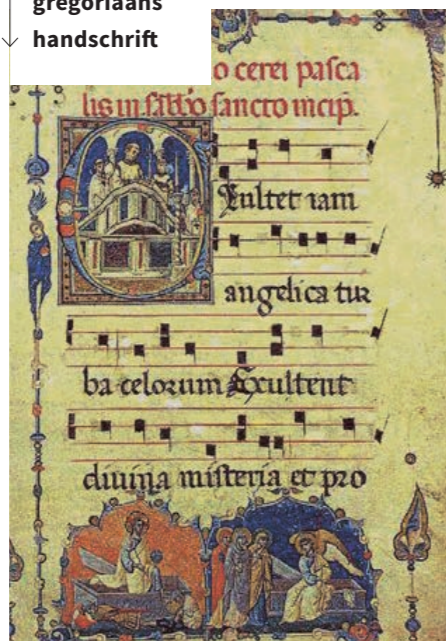 gregoriaans
handschrift
o cerei pasca
lis in sabb'o sancto incip.
Exultet iam
angelica tur
ba celorum Exultent
divina misteria et pro